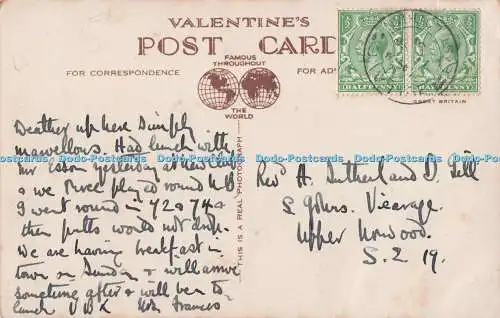 VALENTINE'S
POST CARD
FAMOUS
THROUGHOUT
THE
WORLD
FOR CORRESPONDENCE
FOR AD
HALFPENNY
HALFPENNY
GREAT BRITAIN
THIS IS A REAL PHOTOGRAPH
Weather up here simply
marvellous. Had lunch with
Mr yesterday at New Club
& we three played round N.B.
I went round in 72 & 74 &
then putts would not drop.
We are having breakfast in
town on Sunday & will arrive
sometime after & will be to
lunch Frances
Rev. H. Sutherland D. Gill
S. John's Vicarage
Upper Norwood.
S.E. 19.
Dodo-Postcards Dodo-Postcards Dodo-Postcards Dodo-Postcards Dodo-Postcards Dodo-Postcards